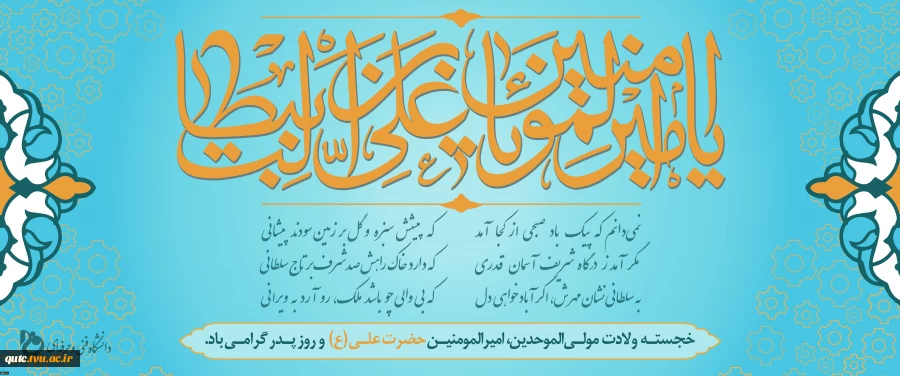 یا امیرالمومنین یا علی بن ابیطالب
نمی‌دانم که پیک باد صبحی از کجا آمد که پیشش سبزه و گل بر زمین سودند پیشانی
مگر آمد ز درگاه شریف آسمان قدری که دارد خاک راهش صد شرف بر تاج سلطانی
به سلطانی نشان مهرش، اگر آباد خواهی دل که بی والی چو باشد ملک، رو آرد به ویرانی
خجسته ولادت مولی‌الموحدین، امیرالمومنین حضرت علی (ع) و روز پدر گرامی باد.
دانشگاه فنی و حرفه‌ای
qutc.tvu.ac.ir